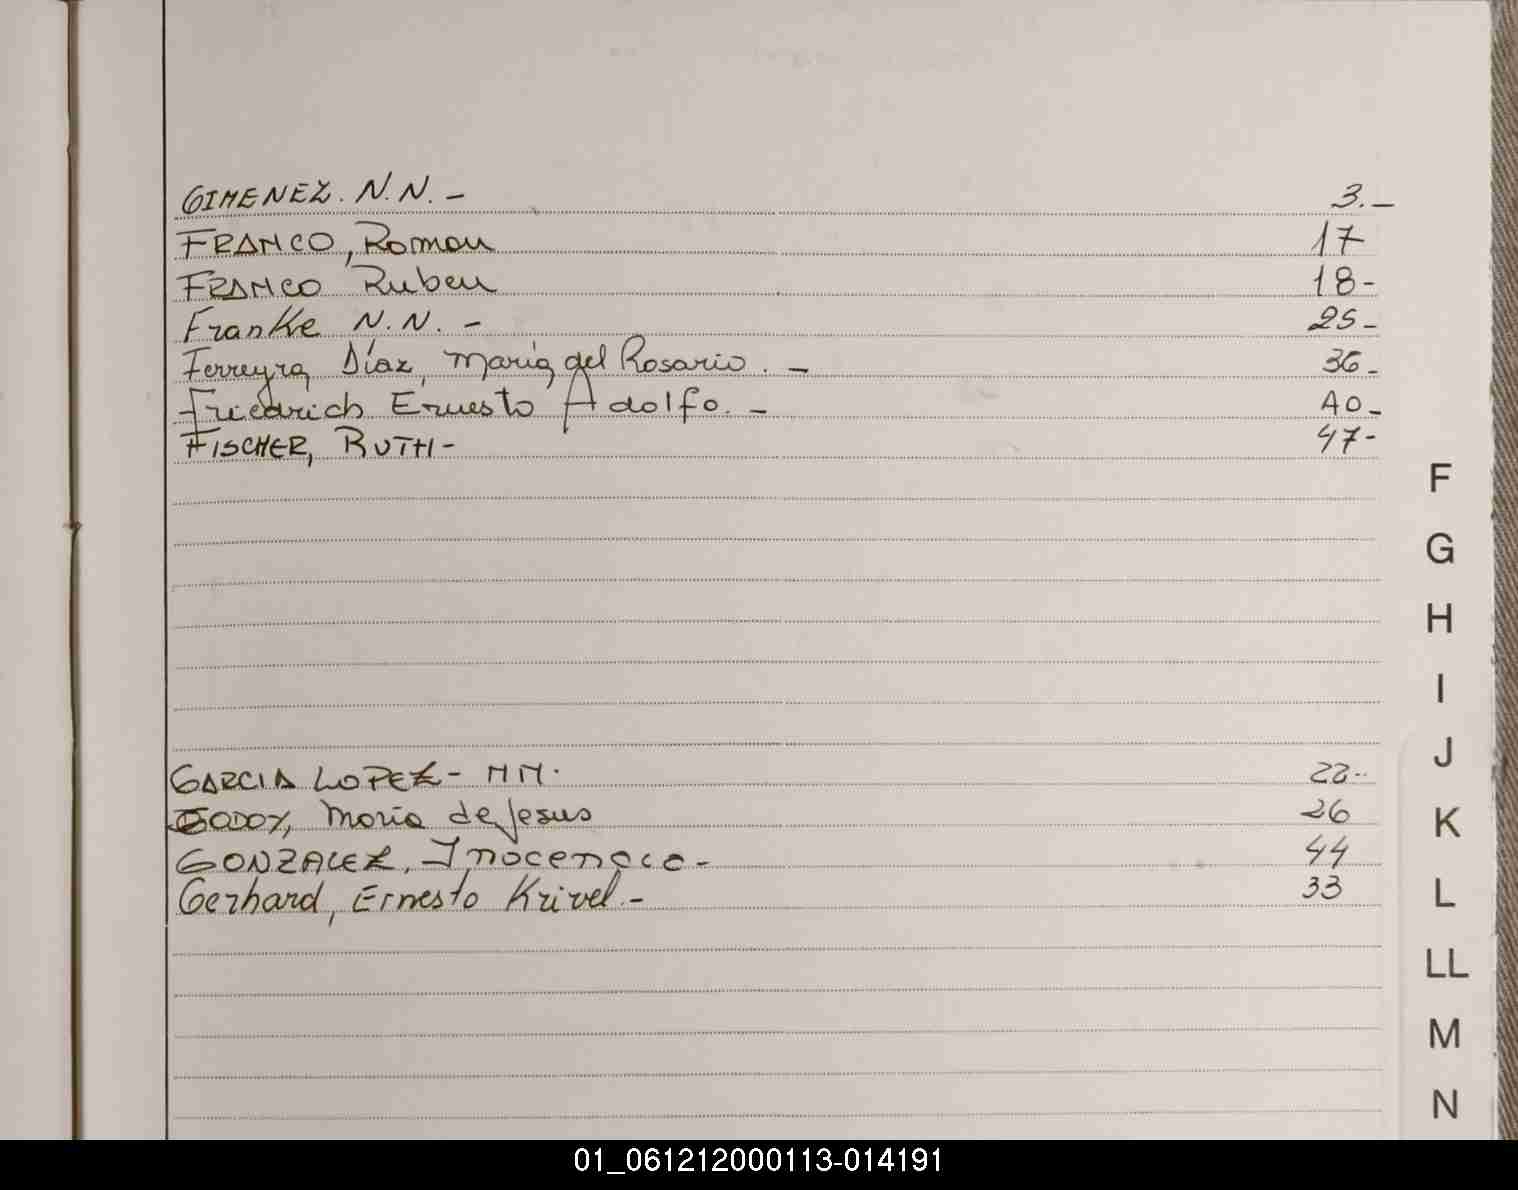 GIMENEZ. N.N. - 3.-
FRANCO, Roman 17
FRANCO Ruben 18-
Franke N.N. - 25-
Ferreyra Díaz, María del Rosario. - 36-
Friedrich Ernesto Adolfo. - 40-
FISCHER, RUTH - 47-
F
G
H
I
J
GARCIA LOPEZ - NN. 22-
GODOY, Maria de Jesus 26
K
GONZALEZ, Inocencio - 44
Gerhard, Ernesto Krivel. - 33
L
LL
M
N
01_061212000113-014191